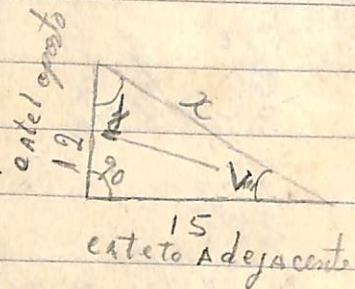 cateto oposto
12
x
20
15
cateto Adejacente